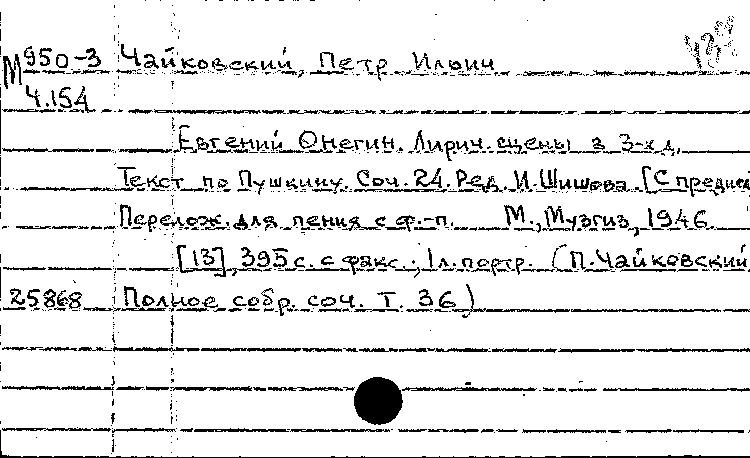 М 950-3 Чайковский, Петр Ильич
4.154
Евгений Онегин. Лирич. сцены в 3-х д.
Текст по Пушкину. Соч. 24. Ред. И. Шишова. [С предис
Перелож. для пения с ф.-п. М., Музгиз, 1946.
[13], 395 с. с факс.; 1 л. портр. (П. Чайковский
25868 Полное собр. соч. Т. 36)